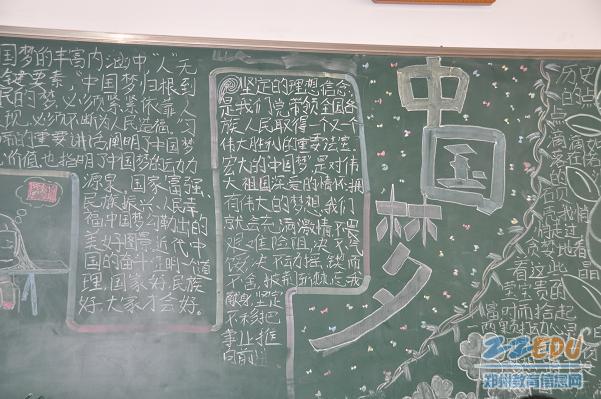 国梦的丰富内涵中"人"无
键要素,"中国梦归根到
民的梦,必须紧紧依靠人
现,必须不断为人民造福。习
的重要讲话阐明了中国梦
价值也指明了中国梦的原动力
源泉。国家富强、
民族振兴、人民幸
福,中国梦勾勒出的
美好图景,近代中
国的奋斗证明一个道
理,国家好,民族
好,大家才会好。
坚定的理想信念
是我们党带领全国各
族人民取得一个又一个
伟大胜利的重要法宝。
宏大的中国梦,是对伟
大祖国深差的情怀,拥
有伟大的梦想,我们
就会充满激情不畏
艰难险阻,决不气
馁,决不动摇,锲而
不舍,
献身,坚定
不移把
事业推
向前
中国梦
历史
的点
满
落在
的
我
走过
贪婪地看
着这些
宝贵的
时而拾起
ZZEDU
郑州教育信息网